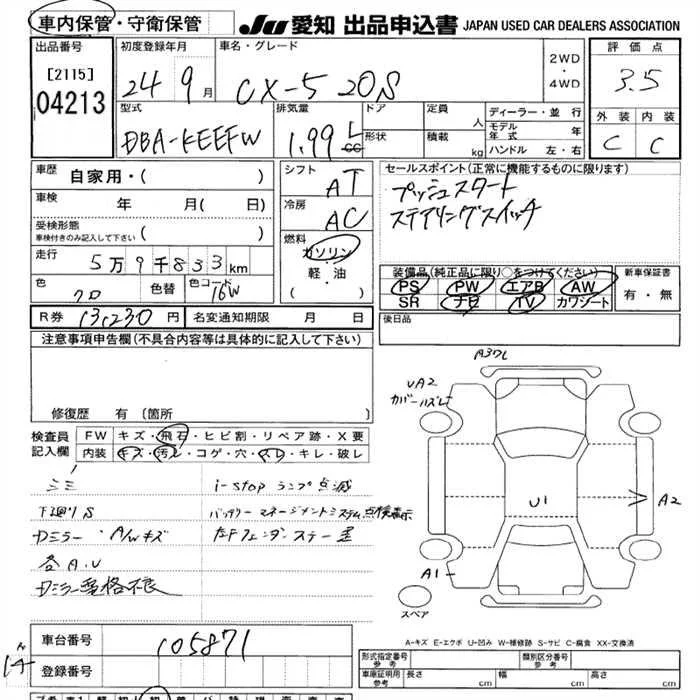 車内保管・守衛保管
JU 愛知 出品申込書 JAPAN USED CAR DEALERS ASSOCIATION
出品番号
[2115]
04213
初度登録年月
24 9月
車名・グレード
CX-5 20S
2WD・4WD
評価点
3.5
外装 内装
C C
型式
DBA-KEEFW
排気量
1.99 L
cc
ドア
形状
定員 人
積載 kg
ディーラー・並行
モデル年式 年
ハンドル 左・右
車歴
自家用・( )
車検 年 月( 日)
受検形態
車検付きのみ記入して下さい ( )
走行
5万9千833km
色
クロ
色替
色コード
16W
シフト
AT
冷房
AC
燃料
ガソリン・軽・油
( )
セールスポイント(正常に機能するものに限り)
プッシュスタート
ステアリングスイッチ
装備品(純正品に限り○をつけてください)
PS PW エアB AW
SR ナビ TV カワシート
新車保証書
有・無
R券 13,230円 名変通知期限 月 日
後日品
注意事項申告欄(不具合内容等は具体的に記入して下さい)
修復歴 有 [箇所
検査員記入欄
FW キズ・飛石・ヒビ割・リペア跡・X要
内装 キズ・汚レ・コゲ・穴・スレ・キレ・破レ
シミ
i-stop ランプ点滅
下廻りS
バッテリーマネージメントシステム点検表示
ドミラー・A/Wキズ
左Fフェンダーステー
各A.U
ドミラー電格不良
A3フL
UA2
カバーズレ
U1
A2
A1
スペア
A-キズ E-エクボ U-凹み W-補修跡 S-サビ C-腐食 XX-交換済
車台番号
105871
登録番号
形式指定番号
参考
類別区分番号
参考
車庫証明用
参考
長さ cm
幅 cm
高さ cm